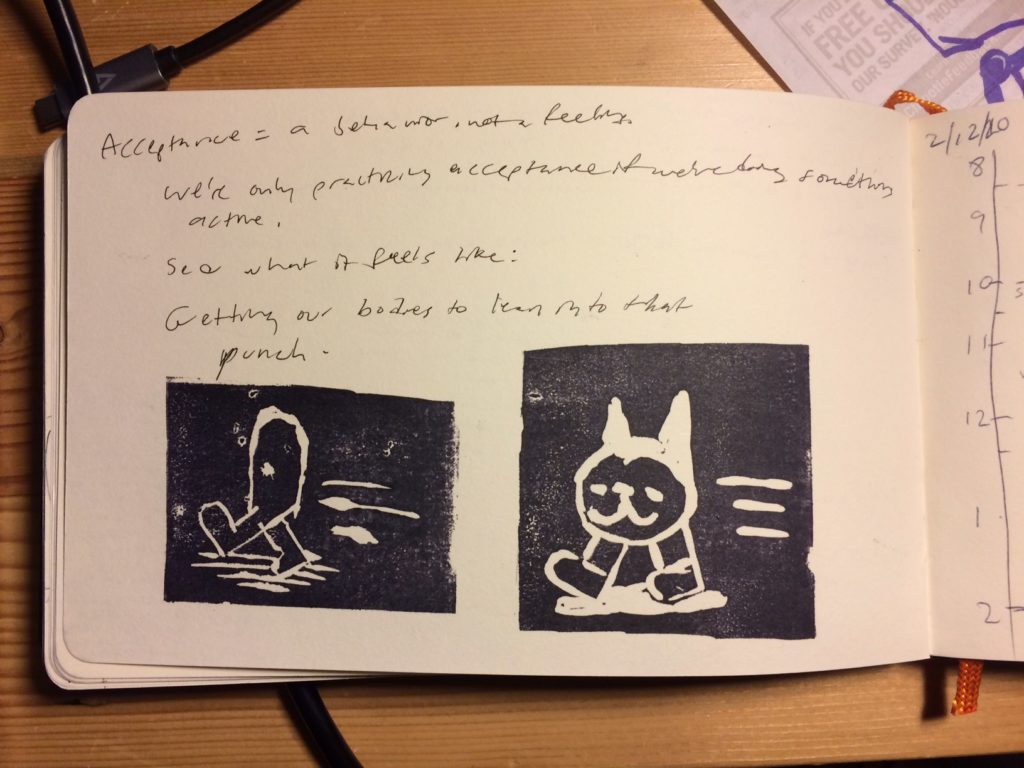 Acceptance = a behavior, not a feeling.
We're only practicing acceptance if we're doing something
active.
See what it feels like:
Getting our bodies to lean into that
punch.
IF YOU'
FREE
YOU SHOU
OUR SURVE
2/12/20
8
9
10
11
12
1
2